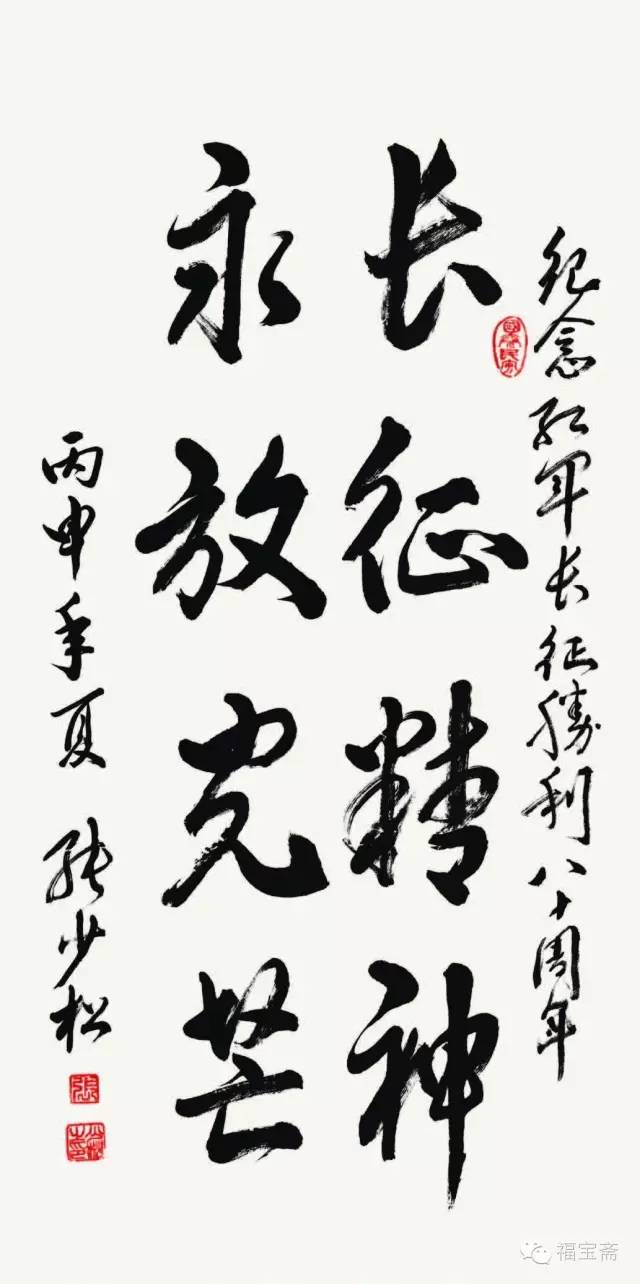 纪念红军长征勝利八十周年
长征精神
永放光芒
丙申年夏 张少松
國泰民安
張
福宝斋